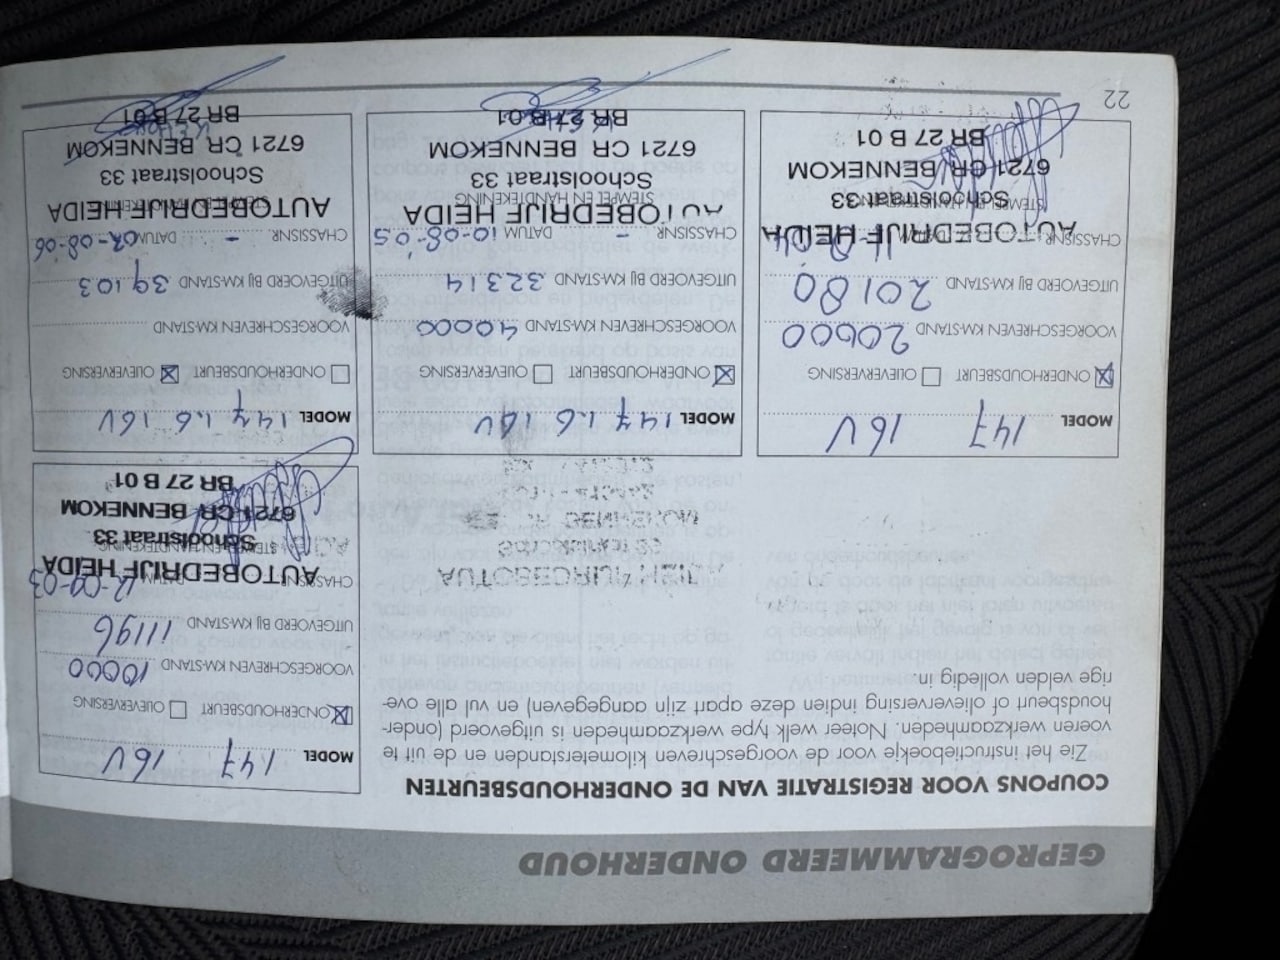 GEPROGRAMMEERD ONDERHOUD
COUPONS VOOR REGISTRATIE VAN DE ONDERHOUDSBEURTEN
Zie het instructieboekje voor de voorgeschreven kilometerstanden en de uit te
voeren werkzaamheden. Noteer welk type werkzaamheden is uitgevoerd (onder-
houdsbeurt of olieverversing indien deze apart zijn aangegeven) en vul alle ove-
rige velden volledig in.
MODEL 147 16V
ONDERHOUDSBEURT OLIEVERVERSING
VOORGESCHREVEN KM-STAND 10000
UITGEVOERD BIJ KM-STAND 11196
CHASSISNR. DATUM 12-09-03
STEMPEL EN HANDTEKENING
AUTOBEDRIJF HEIDA
Schoolstraat 33
6721 CR BENNEKOM
BR 27 B 01
MODEL 147 16V
ONDERHOUDSBEURT OLIEVERVERSING
VOORGESCHREVEN KM-STAND 20000
UITGEVOERD BIJ KM-STAND 20180
CHASSISNR. DATUM
STEMPEL EN HANDTEKENING
AUTOBEDRIJF HEIDA
Schoolstraat 33
6721 CR BENNEKOM
BR 27 B 01
MODEL 147 1.6 16V
ONDERHOUDSBEURT OLIEVERVERSING
VOORGESCHREVEN KM-STAND 40000
UITGEVOERD BIJ KM-STAND 32314
CHASSISNR. - DATUM 10-08-05
STEMPEL EN HANDTEKENING
AUTOBEDRIJF HEIDA
Schoolstraat 33
6721 CR BENNEKOM
BR 27 B 01
MODEL 147 1.6 16V
ONDERHOUDSBEURT OLIEVERVERSING
VOORGESCHREVEN KM-STAND
UITGEVOERD BIJ KM-STAND 39103
CHASSISNR. - DATUM 02-08-06
STEMPEL EN HANDTEKENING
AUTOBEDRIJF HEIDA
Schoolstraat 33
6721 CR BENNEKOM
BR 27 B 01
22